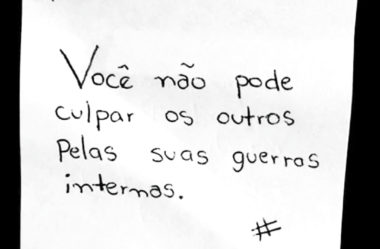 Você não pode
culpar os outros
Pelas suas guerras
internas.
#